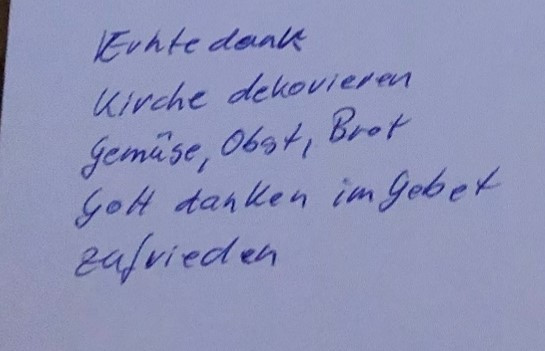 Erntedank
Kirche dekorieren
Gemüse, Obst, Brot
Gott danken im Gebet
zufrieden